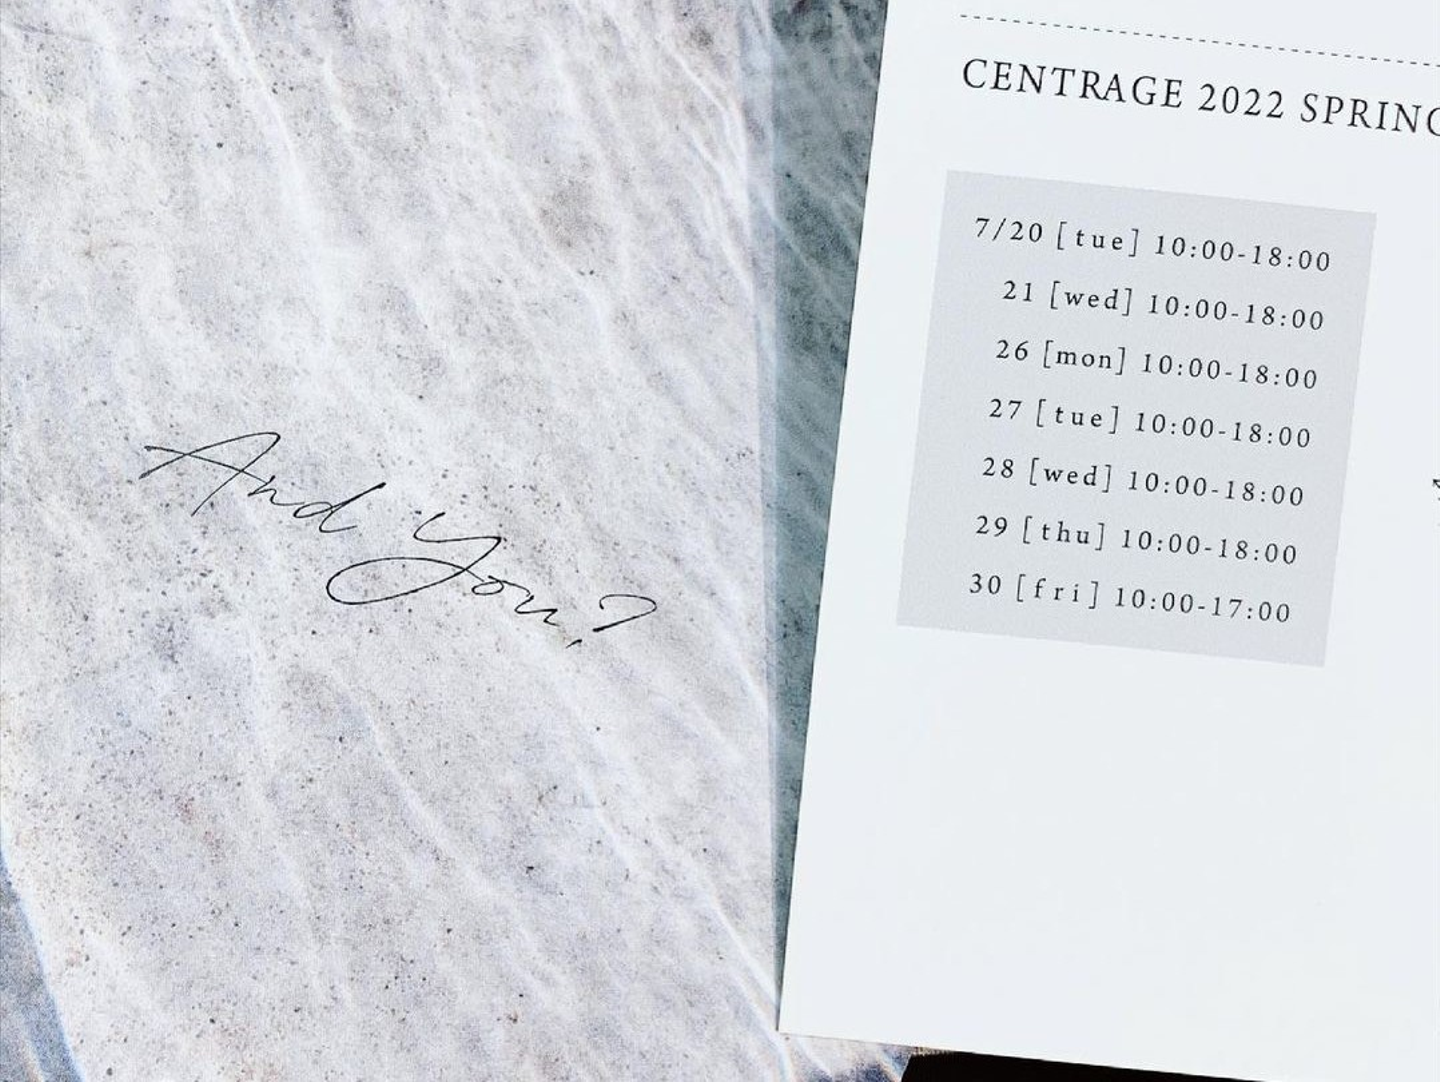 And You?
CENTRAGE 2022 SPRING
7/20 [tue] 10:00-18:00
21 [wed] 10:00-18:00
26 [mon] 10:00-18:00
27 [tue] 10:00-18:00
28 [wed] 10:00-18:00
29 [thu] 10:00-18:00
30 [fri] 10:00-17:00